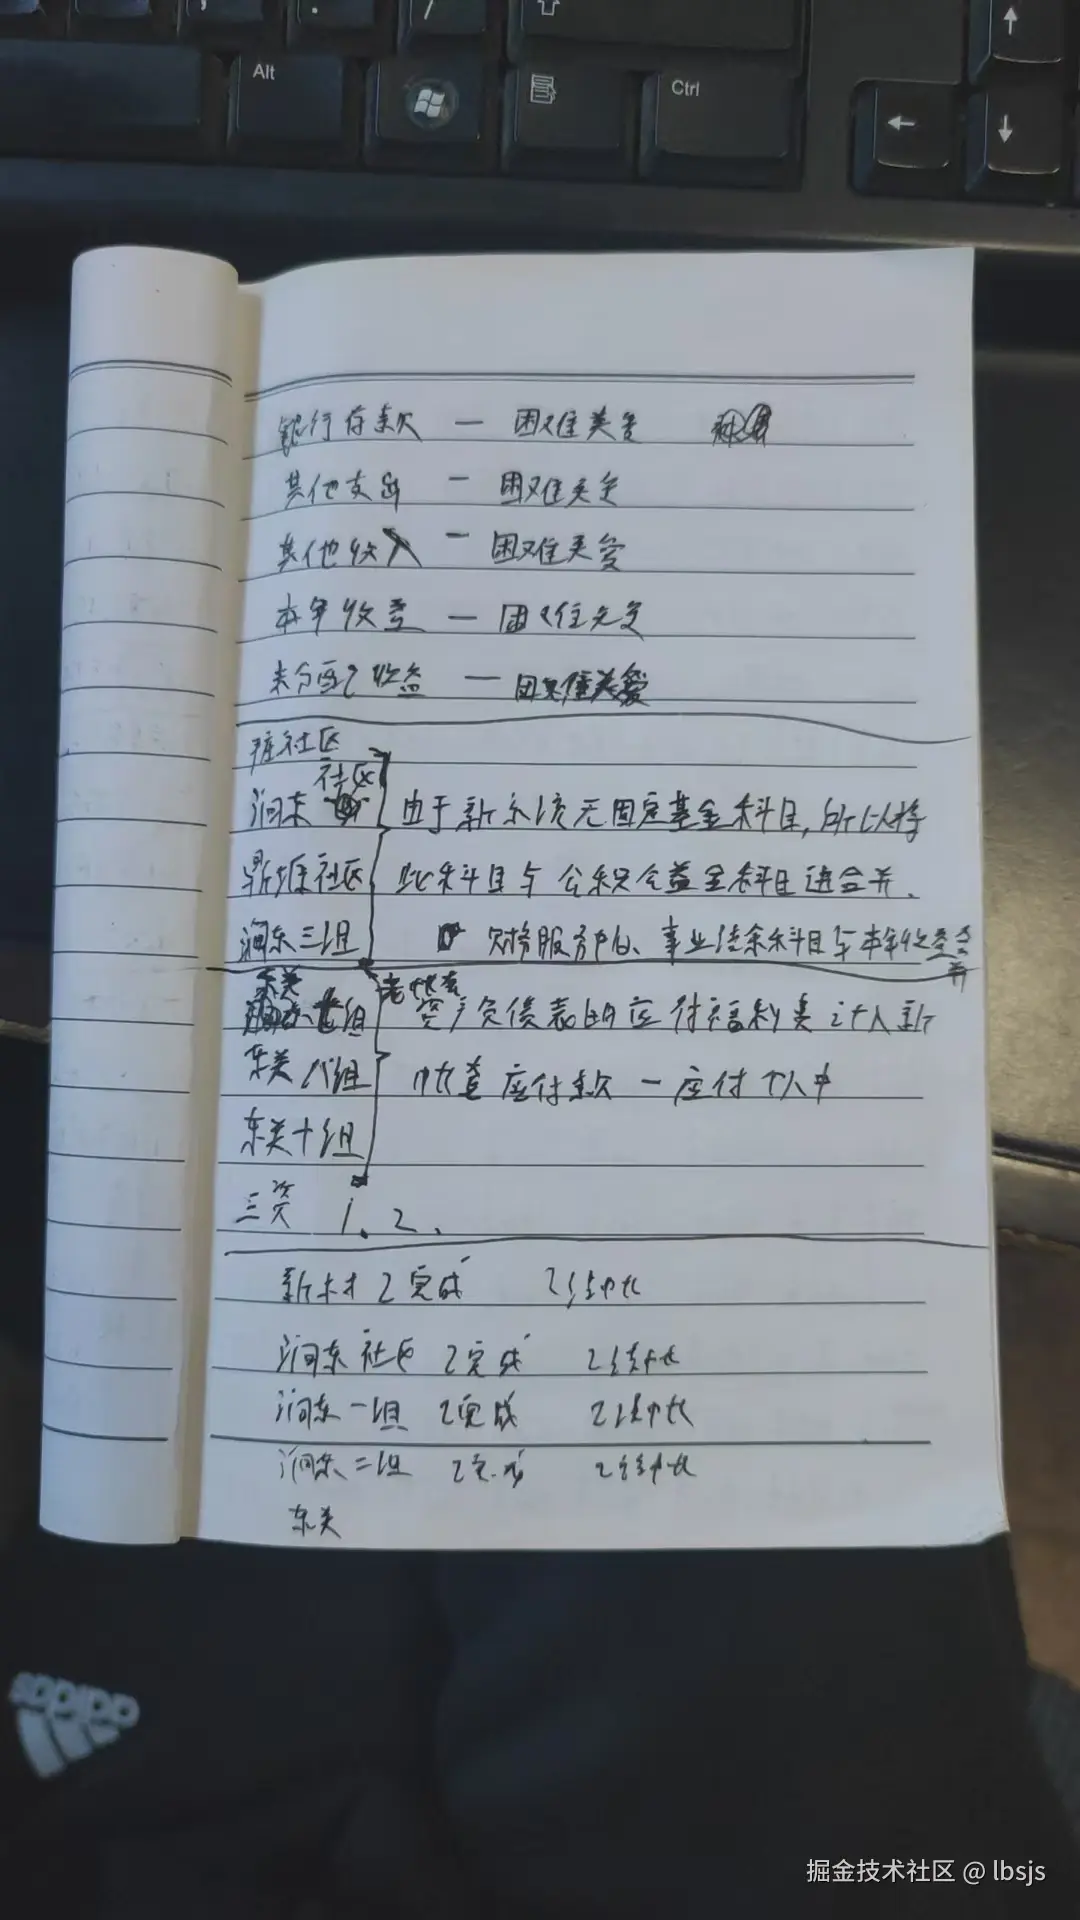 Alt
Ctrl
银行存款 — 困难关爱
其他支出 — 困难关爱
其他收入 — 困难关爱
本年收益 — 困难关爱
未分配收益 — 困难关爱
社区
社区
涧东 由于新系统无固定基金科目,所以将
社区 此科目与公积公益金科目进合并.
涧东三组 财务服务中心、事业结余科目与本年收益合并
东关
组 老帐套资产负债表的应付福利费计入新
东关八组 帐套应付款 — 应付个人中
东关十组
三资 1、2、
新村 已完成 已结帐
涧东社区 已完成 已结帐
涧东一组 已完成 已结帐
涧东二组 已完成 已结帐
东关
adidas
掘金技术社区 @ lbsjs